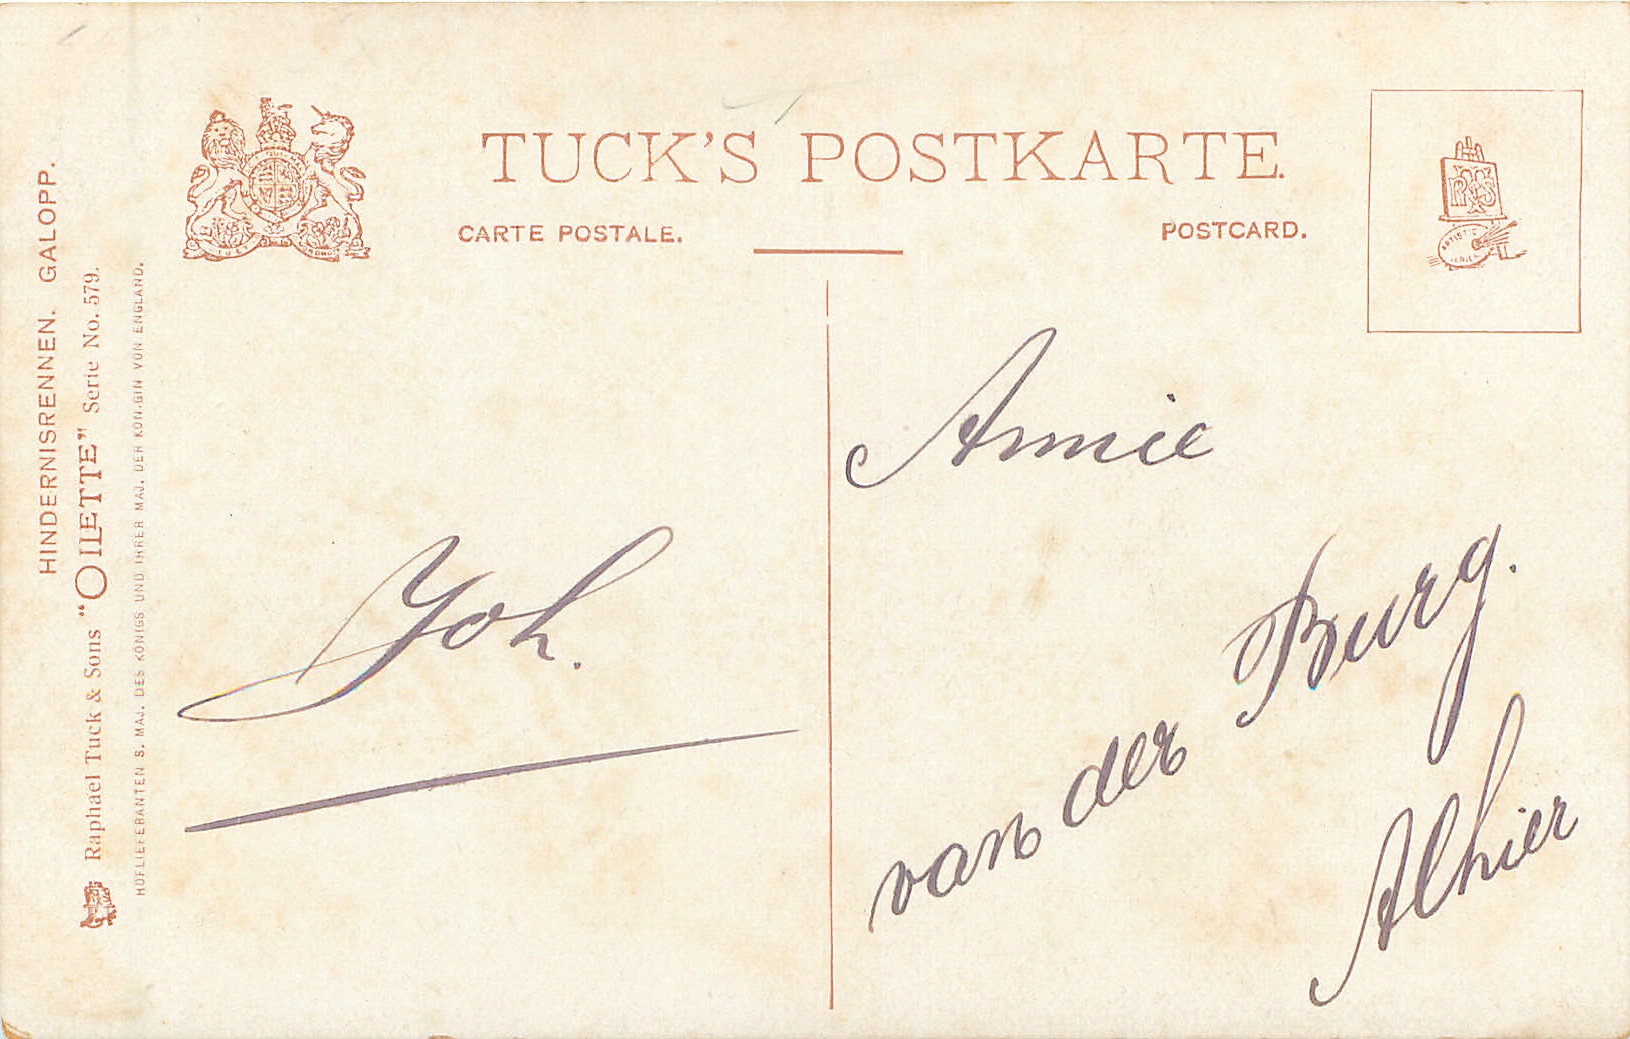 TUCK'S POSTKARTE.
CARTE POSTALE.
POSTCARD.
RTS
ARTISTIC
SERIES
HINDERNISRENNEN. GALOPP.
Raphael Tuck & Sons "OILETTE" Serie No. 579.
HOFLIEFERANTEN S. MAJ. DES KÖNIGS UND IHRER MAJ. DER KÖNIGIN VON ENGLAND.
Joh.
Annie
van der Burg.
Alhier